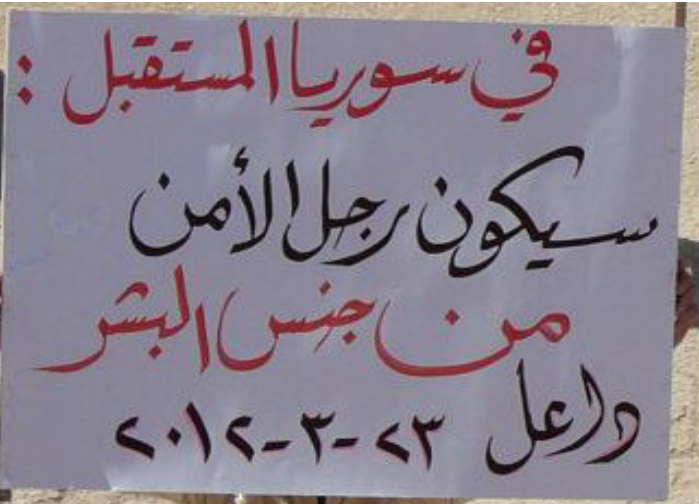 في سوريا المستقبل :
سيكون رجل الأمن
من جنس البشر
داعل ٢٣-٣-٢٠١٢